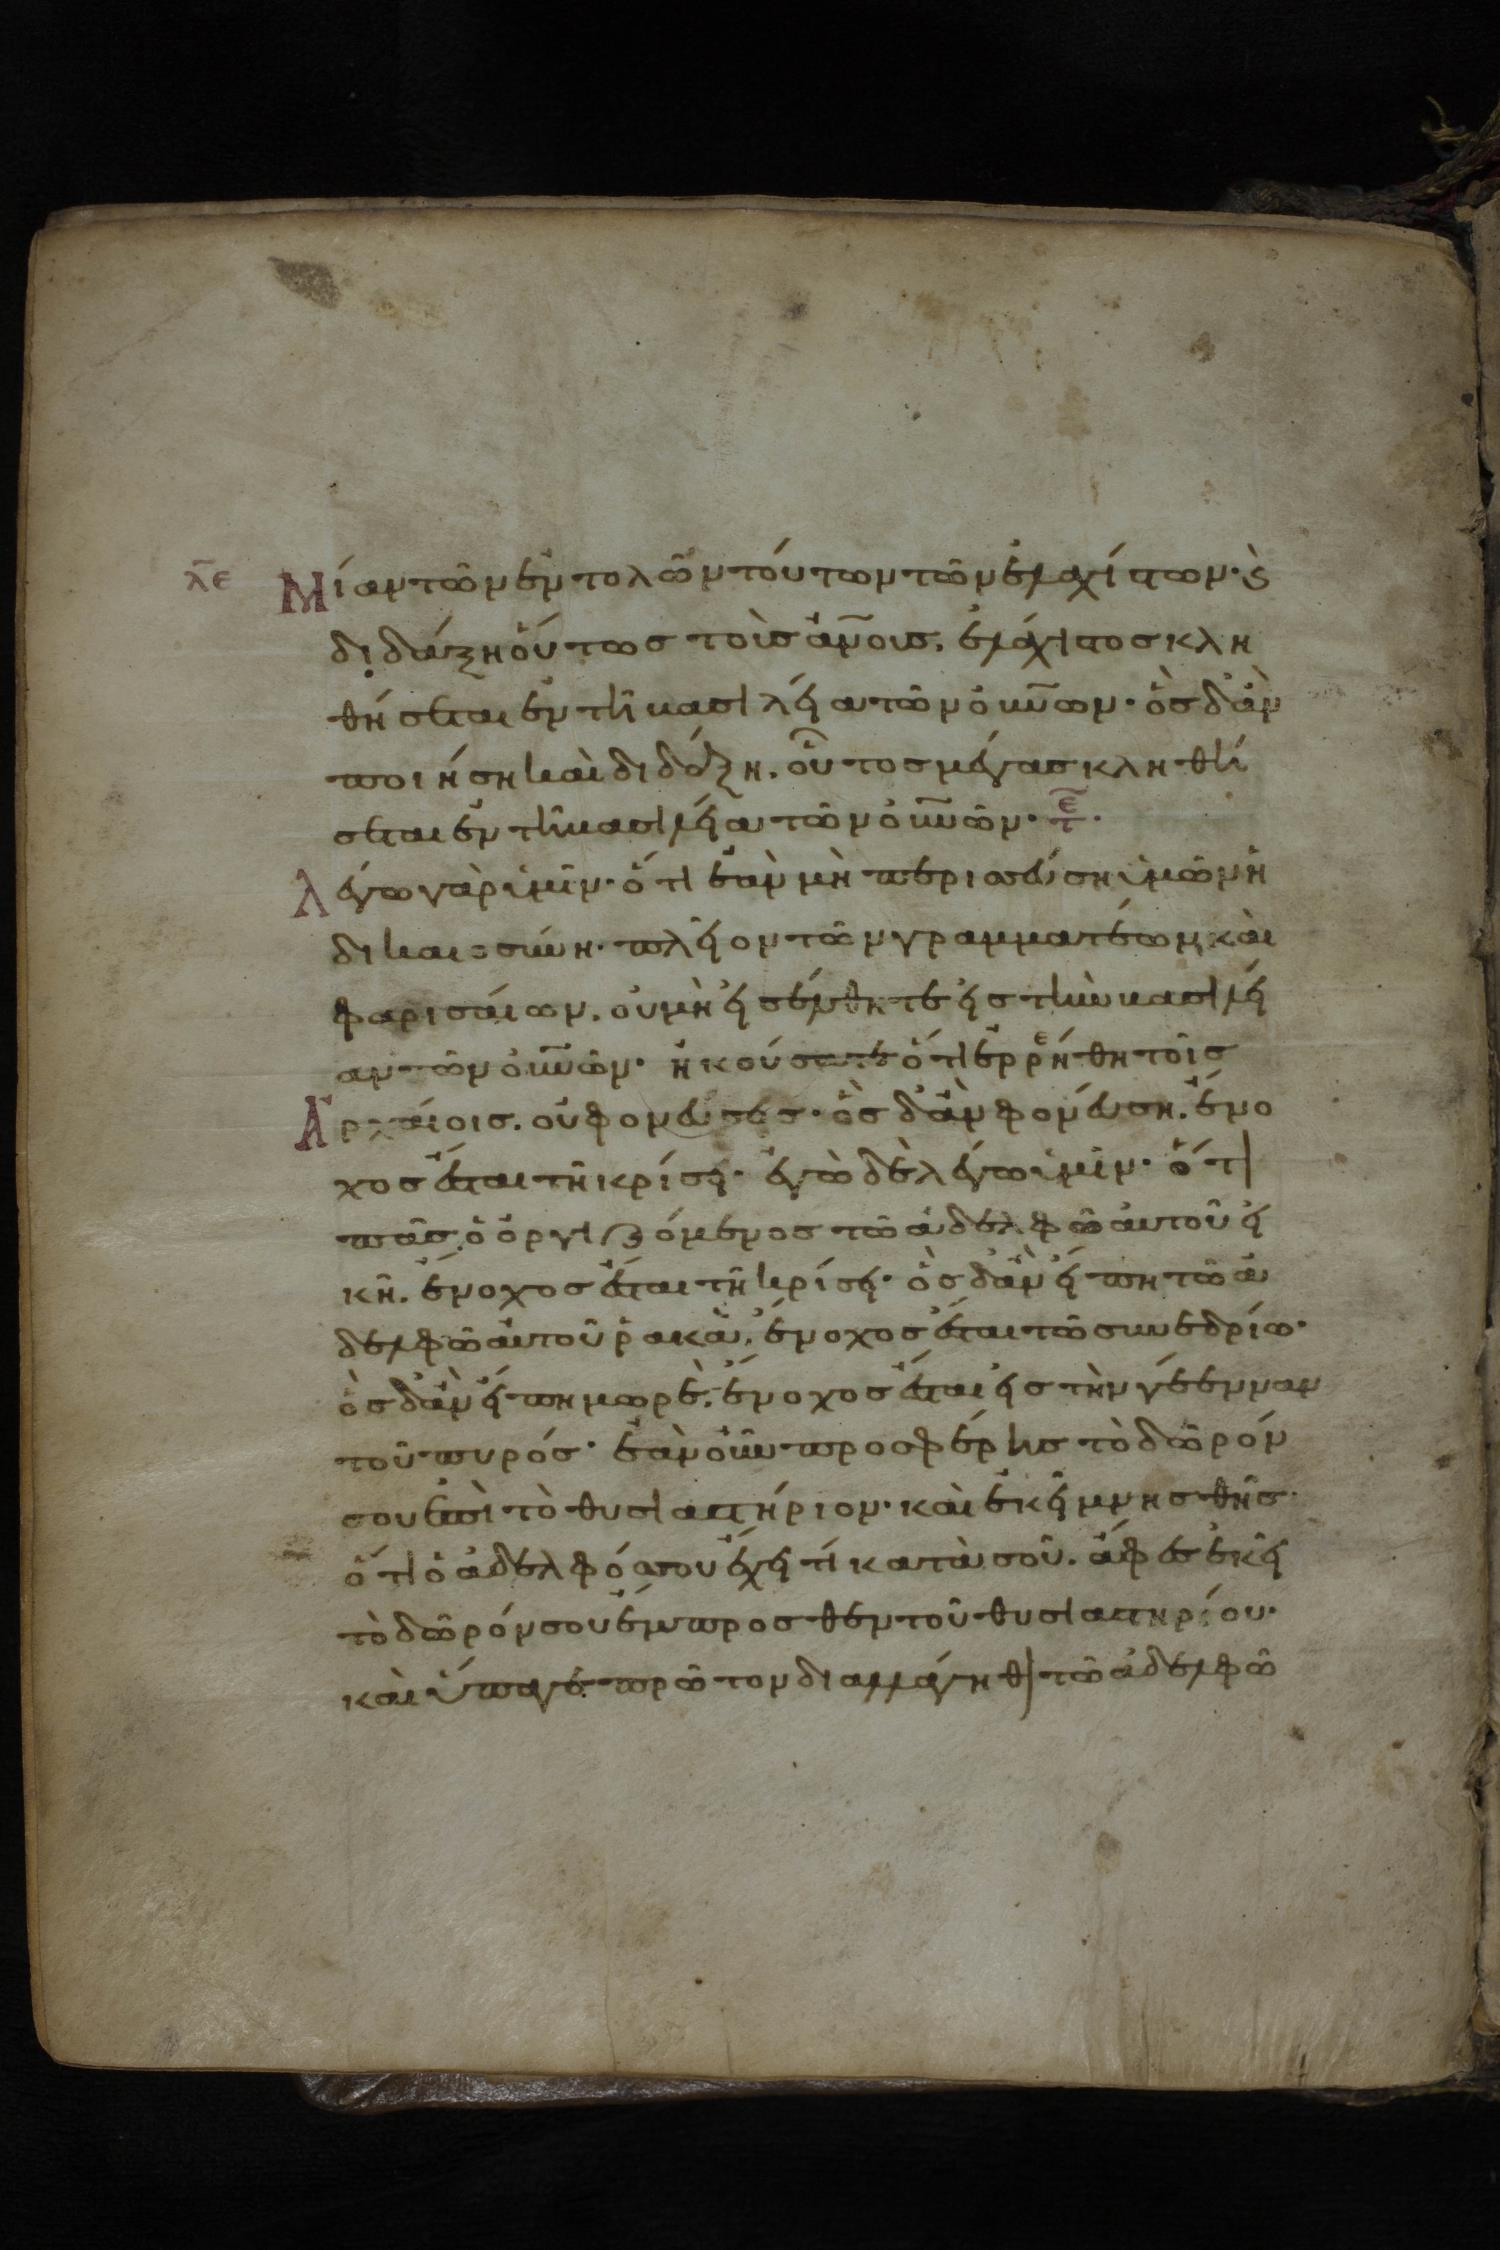 λ̅ε̅ Μίαν τῶν ἐντολῶν τούτων τῶν ἐλαχίστων· ϛ̀
διδάξη οὕτως τοὺς ἀν̅ους. ἐλάχιστος κλη
θήσεται ἐν τῆ βασιλεία τῶν οὐν̅ων· ὃς δ' ἂν
ποιήση καὶ διδάξη. οὗτος μέγας κληθή
σεται ἐν τῆ βασιλεία τῶν οὐν̅ῶν· τ̅ε̅·
Λέγω γὰρ ὑμῖν· ὅτι ἐὰν μὴ περισσεύση ὑμῶν ἡ
δικαιοσύνη· πλεῖον τῶν γραμματέων καὶ
φαρισαίων. οὐ μὴ εἰσέλθητε εἰς τὴν βασιλεί
αν τῶν οὐν̅ῶν· ἠκούσατε ὅτι ἐρρέθη τοῖς
Ἀρχαίοις. οὐ φονεύσεις· ὃς δ' ἂν φονεύση. ἔνο
χος ἔσται τῆ κρίσει· ἐγὼ δὲ λέγω ὑμῖν· ὅτι
πᾶς ὁ ὀργιζόμενος τῶ ἀδελφῶ αὐτοῦ εἰ
κῆ. ἔνοχος ἔσται τῆ κρίσει· ὃς δ' ἂν εἴπη τῶ ἀ
δελφῶ αὐτοῦ ῥακά. ἔνοχος ἔσται τῶ συνεδρίω·
ὃς δ' ἂν εἴπη μωρέ. ἔνοχος ἔσται εἰς τὴν γέενναν
τοῦ πυρός· ἐὰν οὖν προσφέρης τὸ δῶρόν
σου ἐπὶ τὸ θυσιαστήριον· καὶ ἐκεῖ μνησθῆς·
ὅτι ὁ ἀδελφός σου ἔχει τὶ κατὰ σοῦ. ἄφες ἐκεῖ
τὸ δῶρόν σου ἔμπροσθεν τοῦ θυσιαστηρίου·
καὶ ὕπαγε πρῶτον διαλλάγηθι τῶ ἀδελφῶ